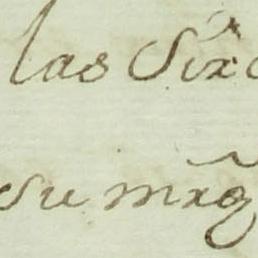 las Six
su mrg